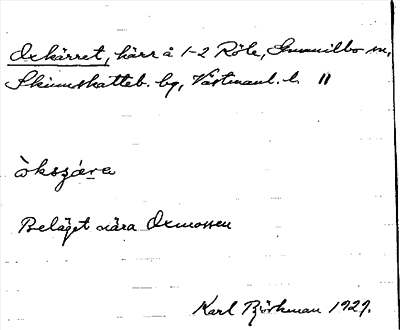 Oxkärret, kärr å 1-2 Röle, Gunnilbo sn,
Skinnskatteb. hg, Västmanl. l. 11
òkszæ̀re
Beläget nära Oxmossen
Karl Björkman 1929.